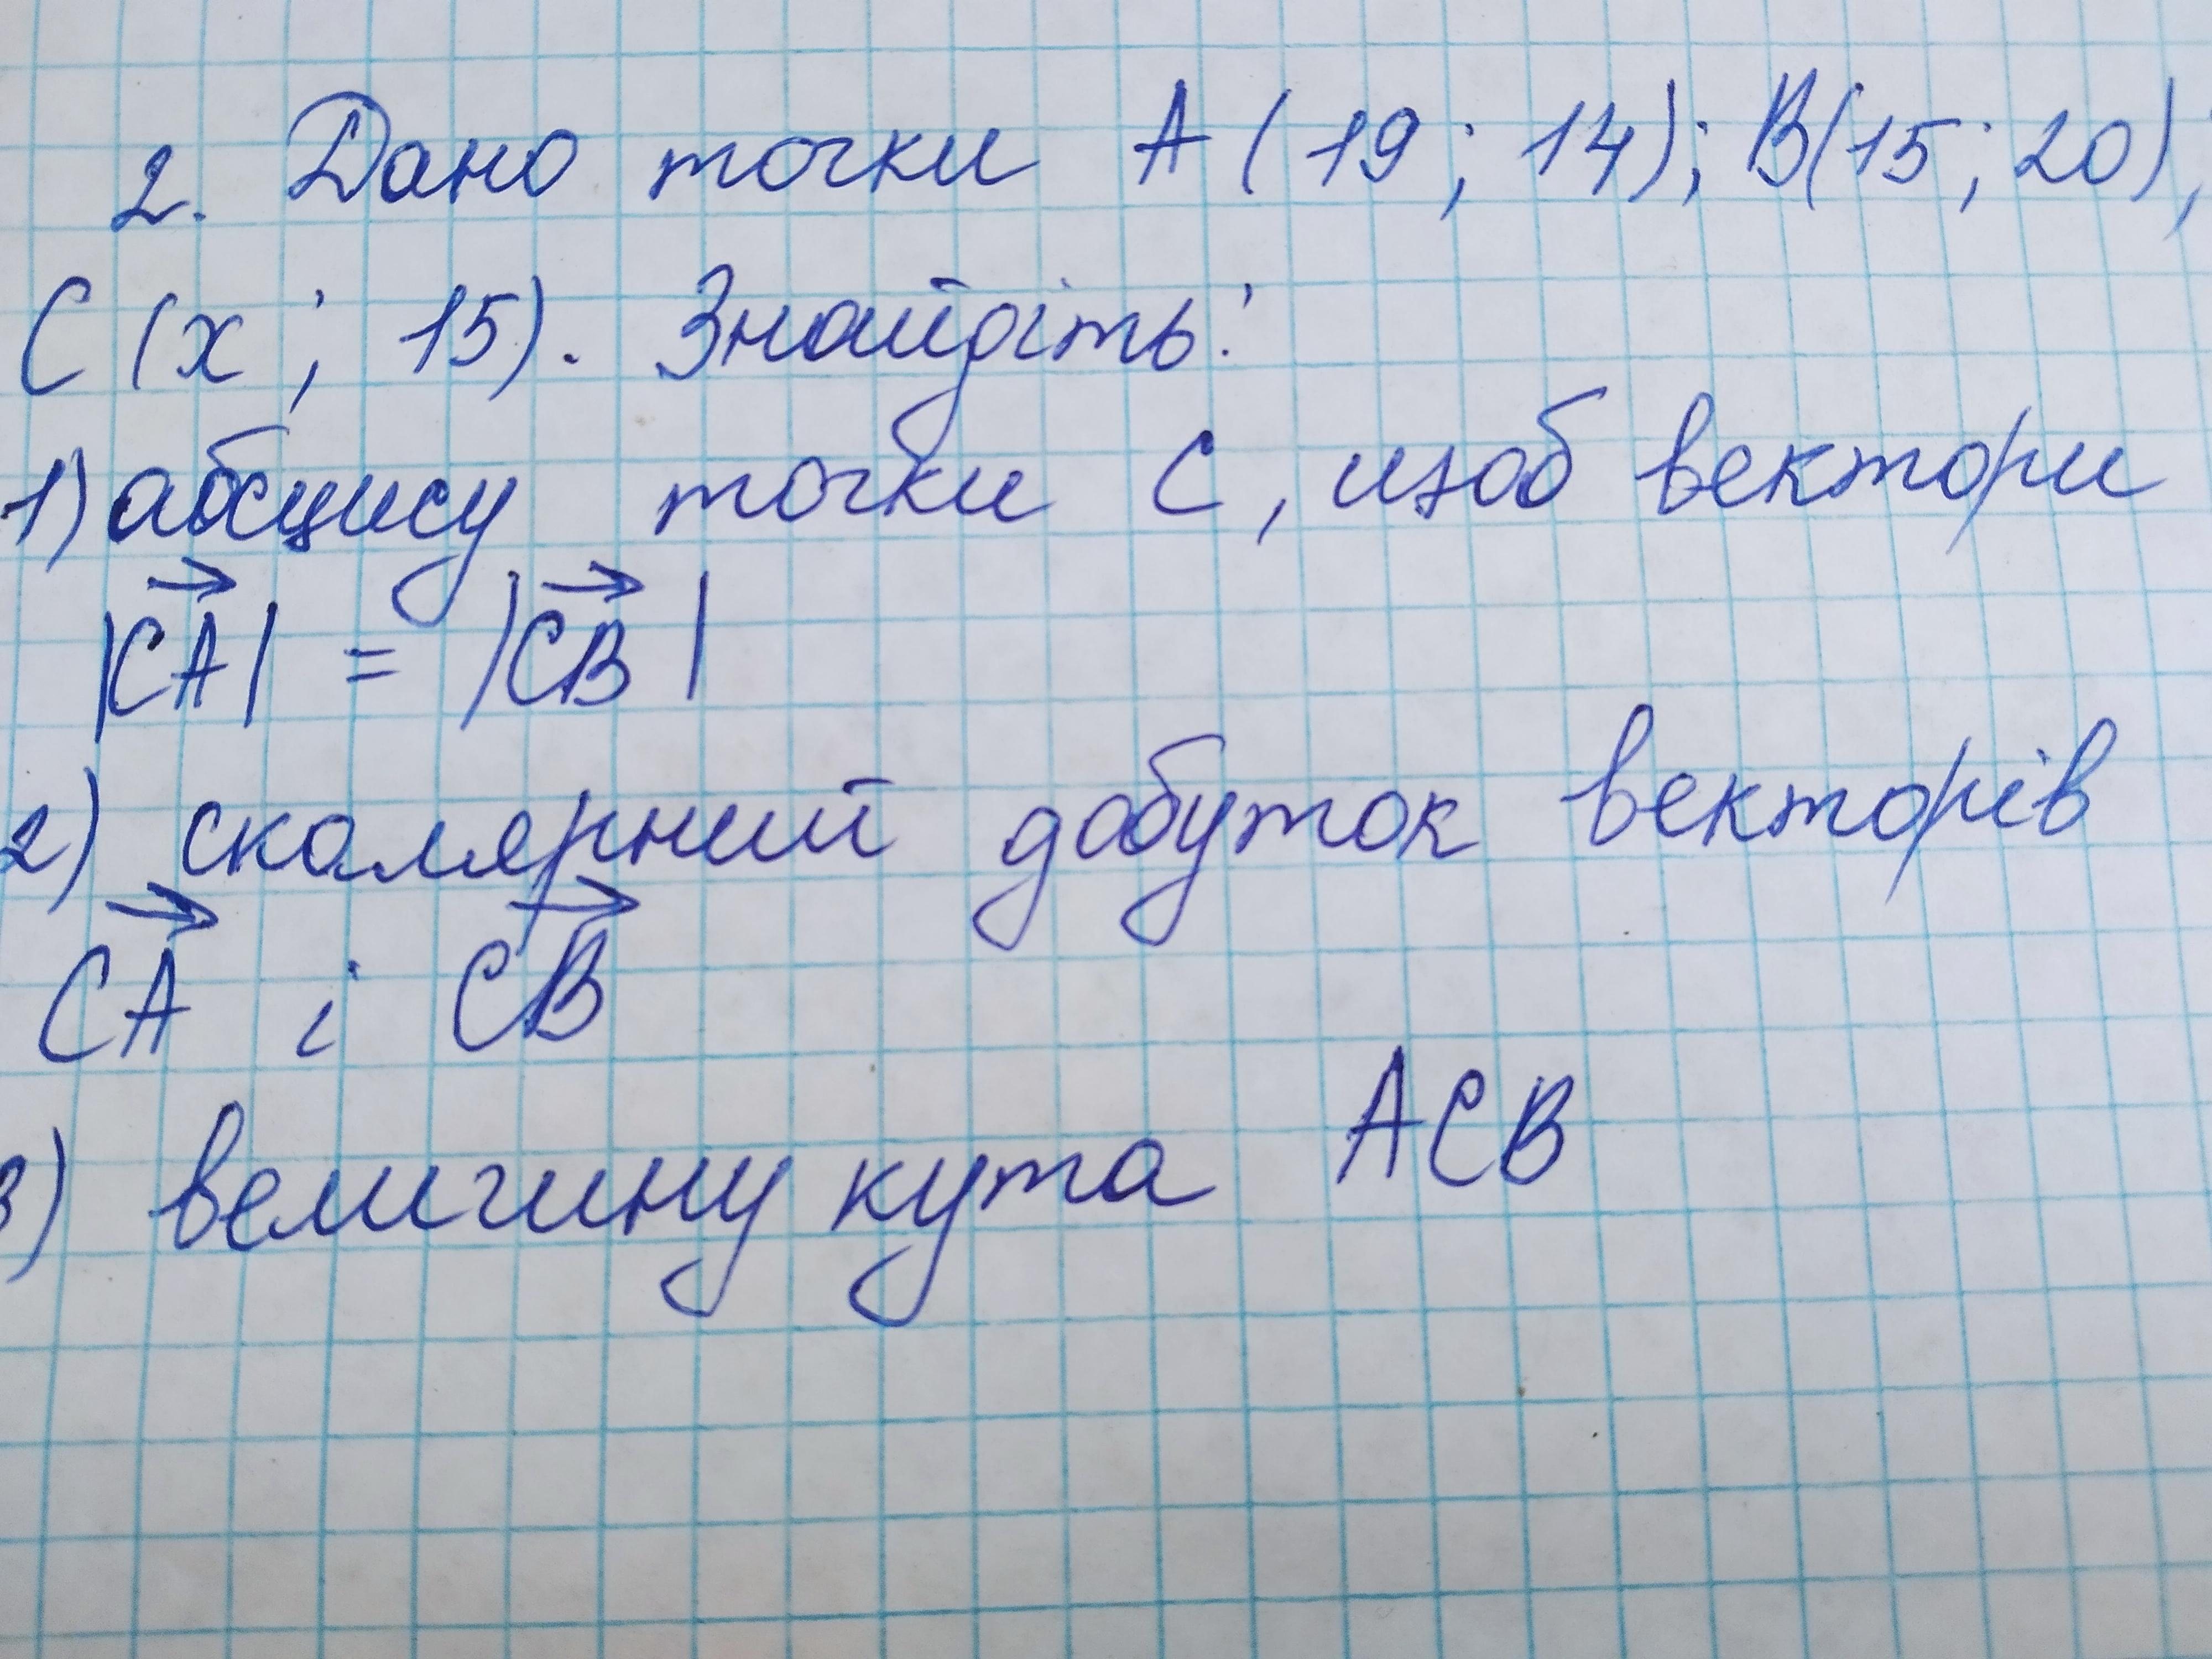 2. Дано точки A (19; 14); B(15; 20),
C (x; 15). Знайдіть:
1) абсцису точки C, щоб вектори
|CA| = |CB|
2) скалярний добуток векторів
CA і CB
3) величину кута ACB